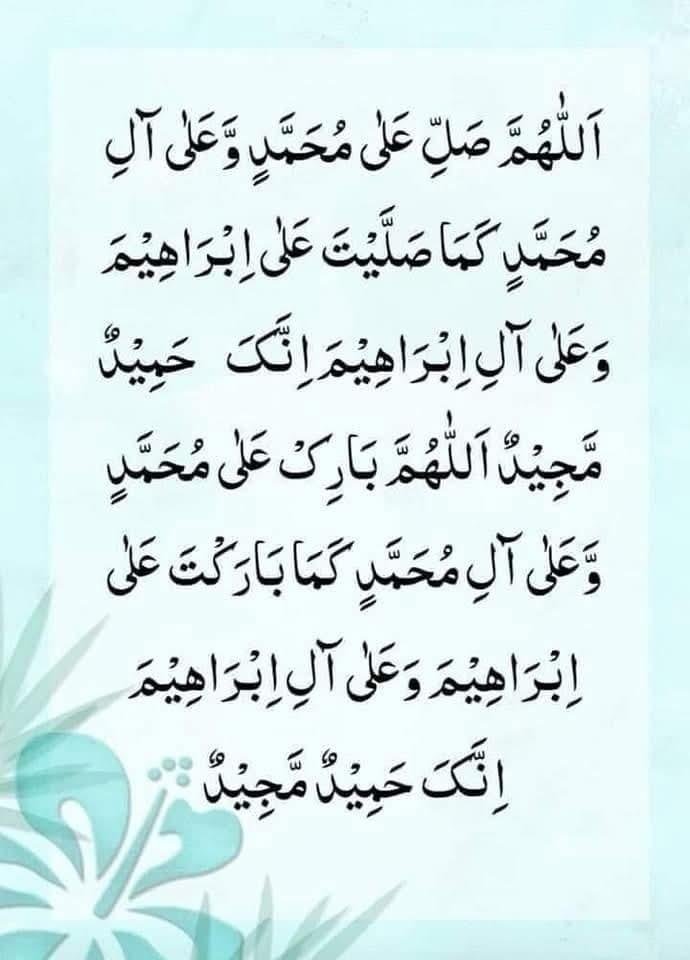 اَللّٰهُمَّ صَلِّ عَلٰی مُحَمَّدٍ وَّعَلٰی آلِ
مُحَمَّدٍ کَمَا صَلَّیْتَ عَلٰی اِبْرَاهِیْمَ
وَعَلٰی آلِ اِبْرَاهِیْمَ اِنَّکَ حَمِیْدٌ
مَّجِیْدٌ اَللّٰهُمَّ بَارِکْ عَلٰی مُحَمَّدٍ
وَّعَلٰی آلِ مُحَمَّدٍ کَمَا بَارَکْتَ عَلٰی
اِبْرَاهِیْمَ وَعَلٰی آلِ اِبْرَاهِیْمَ
اِنَّکَ حَمِیْدٌ مَّجِیْدٌ